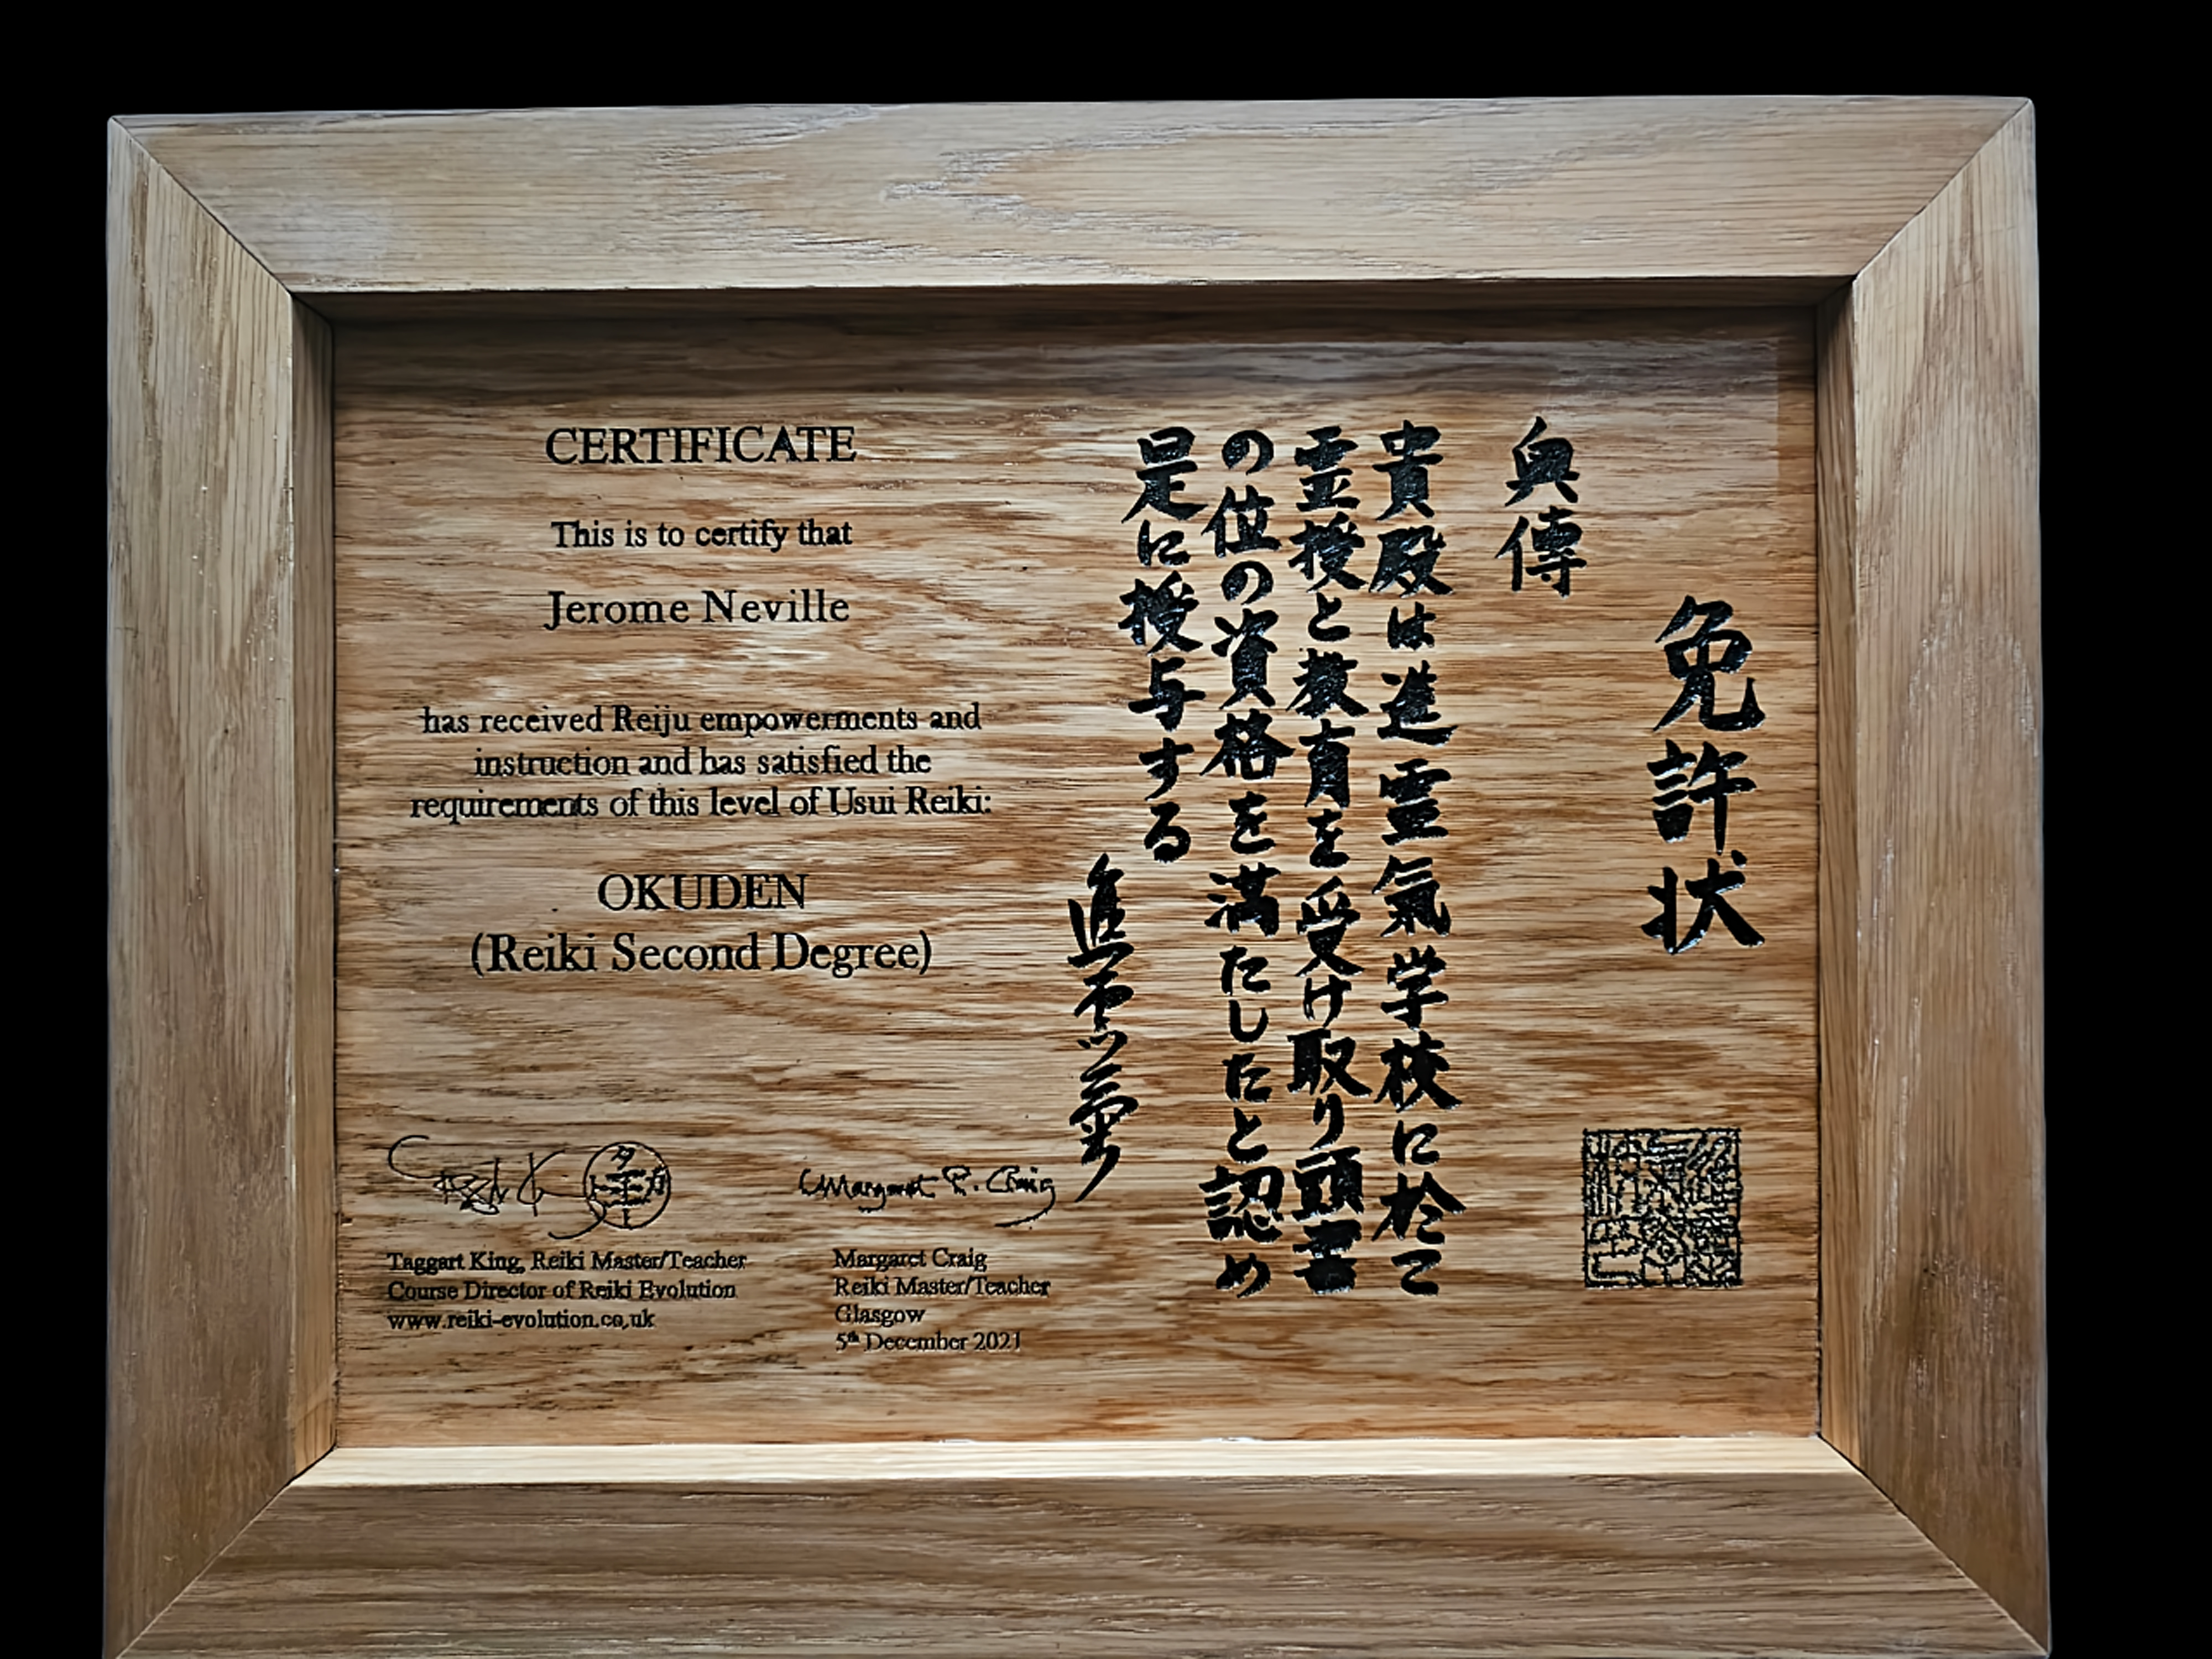 CERTIFICATE
This is to certify that
Jerome Neville
has received Reiju empowerments and
instruction and has satisfied the
requirements of this level of Usui Reiki:
OKUDEN
(Reiki Second Degree)
Margaret P. Craig
Taggart King, Reiki Master/Teacher
Course Director of Reiki Evolution
www.reiki-evolution.co.uk
Margaret Craig
Reiki Master/Teacher
Glasgow
5th December 2021
免許状
奥傳
貴殿は進霊氣学校に於て
霊授と教育を受け取り頭書
の位の資格を満たしたと認め
是に授与する